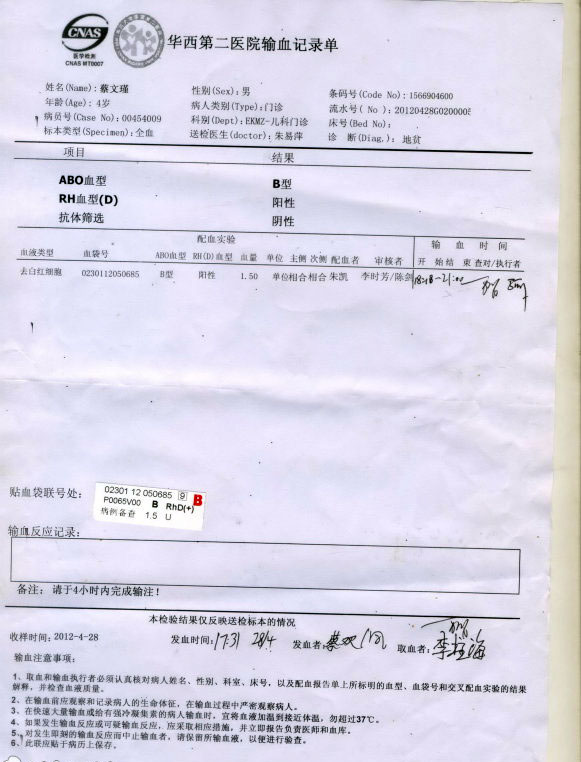 CNAS
医学检测
CNAS MT0007
华西第二医院输血记录单
姓名(Name): 蔡文瑾 性别(Sex): 男 条码号(Code No): 1566904600
年龄(Age): 4岁 病人类别(Type): 门诊 流水号( No ): 20120428G020000
病员号(Case No): 00454009 科别(Dept): EKMZ-儿科门诊 床号(Bed No):
标本类型(Specimen): 全血 送检医生(doctor): 朱易萍 诊 断(Diag.): 地贫
项目 结果
ABO血型 B型
RH血型(D) 阳性
抗体筛选 阴性
配血实验 输 血 时 间
血液类型 血袋号 ABO血型 RH(D)血型 血量 单位 主侧 次侧 配血者 审核者 开 始 结 束 查对/执行者
去白红细胞 0230112050685 B型 阳性 1.50 单位 相合 相合 朱凯 李时芳/陈剑 18:18-21:00
贴血袋联号处:
02301 12 050685 9 B
P0065V00 B RhD(+)
病例备查 1.5 U
输血反应记录:
备注: 请于4小时内完成输注!
本检验结果仅反映送检标本的情况
收样时间: 2012-4-28 发血时间: 17:31 28/4 发血者: 取血者:
输血注意事项:
1、取血和输血执行者必须认真核对病人姓名、性别、科室、床号，以及配血报告单上所标明的血型、血袋号和交叉配血实验的结果
解释，并检查血液质量。
2、在输血前应观察和记录病人的生命体征，在输血过程中严密观察病人。
3、在快速大量输血或给有强冷凝集素的病人输血时，宜将血液加温到接近体温，勿超过37℃。
4、如果发生输血反应或可疑输血反应，应采取相应措施，并立即报告负责医师和血库。
5、对发生即刻的输血反应而中止输血者，请保留所输血液，以便进行检查。
6、此联应贴于病历上保存。